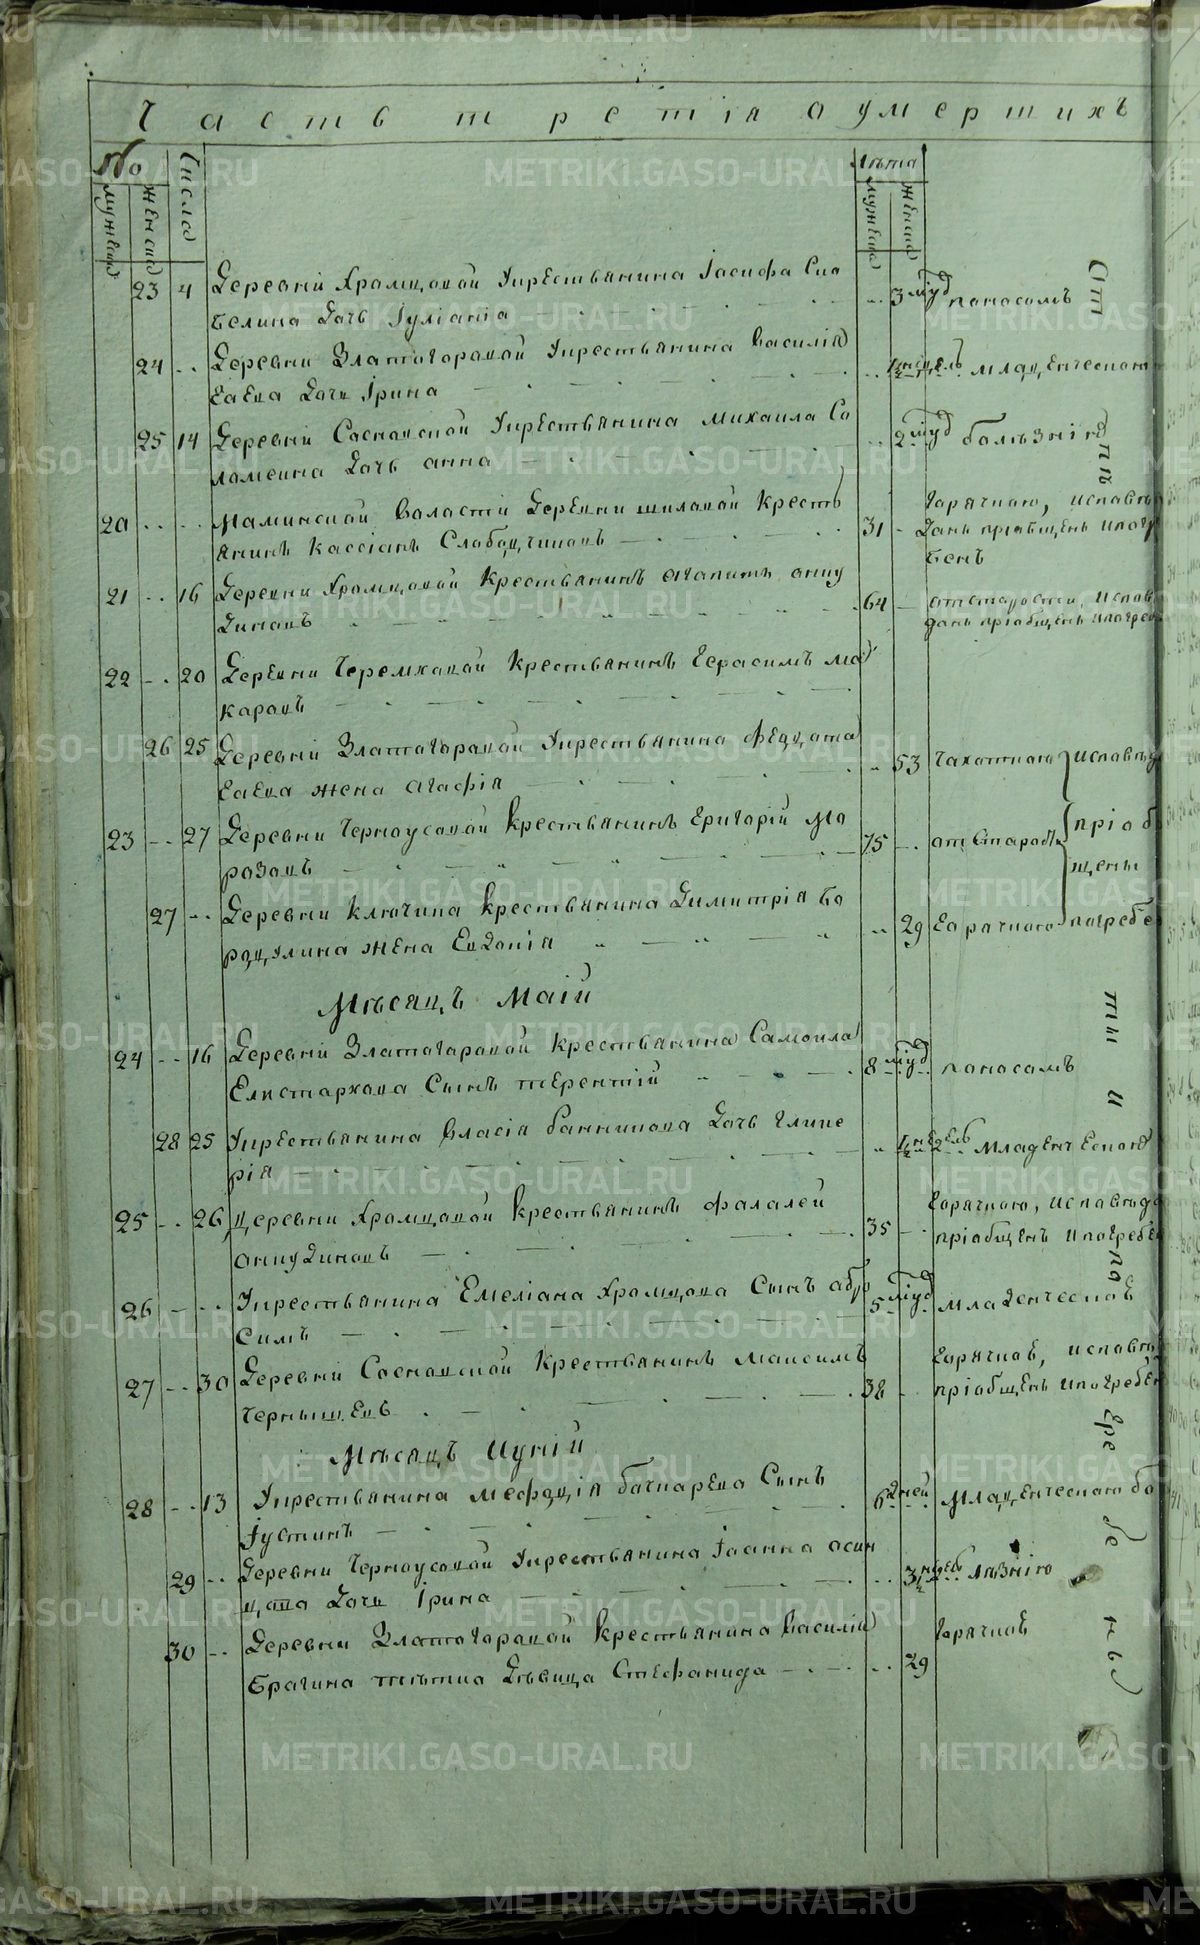 Часть третія оумершихъ
№ Числа Лѣта
мужеска женска мужеска женска
23 4 Деревни Храмцовой Укрестьянина Іосифа Ско
белина Дочь Іуліанія 3 міѵд поносомъ
24 Деревни Златогоровой Укрестьянина Василія
Евѣва Дочь Ірина нѣдѣль младенческою
25 14 Деревни Сосновской Укрестьянина Михаила Со
ломеина Дочь Анна 2 міѵд болѣзнію
20 Маминской Воласти Деревни Шиловой Кресть
янинъ Кассіанъ Слободчиковъ 31 горячкою, исповѣ
данъ пріобщенъ и погр
бенъ
21 16 Деревни Храмцовой Крестьянинъ Агапитъ Анку
диновъ 64 отъ старости, испов
данъ пріобщенъ и погреб
22 20 Деревни Черемховой Крестьянинъ Герасимъ Ма
каровъ
26 25 Деревни Златогоровой Укрестьянина Федота
Евѣва жена Агафія 53 Чахоткою исповѣд
23 27 Деревни Черноусовой Крестьянинъ Григорій Мо
розовъ 75 отъ Старости пріоб
щены
27 Деревни Ключика Крестьянина Димитрія Бо
родулина жена Евдокія 29 Горячкою погребе
Мѣсяцъ Маій
24 16 Деревни Златогоровой Крестьянина Самоила
Елистархова Сынъ Терентій 8 міѵд поносомъ
28 25 Укрестьянина Власія Банникова Дочь Глике
рія недель младенческою
25 26 Деревни Храмцовой Крестьянинъ Фалалей
Анкудиновъ 35 горячкою, исповѣда
пріобщенъ и погребен
26 Укрестьянина Емеліана Храмцова Сынъ Абро
симъ 5 міѵд младенческой
27 30 Деревни Сосновской Крестьянинъ Максимъ
Чернышевъ 38 горячкой, исповѣ
пріобщенъ и погребен
Мѣсяцъ Иуній
28 13 Укрестьянина Мефодія Бачкарева Сынъ
Іустинъ 6 дней Младенческою бо
29 Деревни Черноусовой Укрестьянина Іоанна Осин
цова Дочь Ірина 3 недѣль лѣзнію
30 Деревни Златогоровой Крестьянина Василія
Брагина тетка Дѣвица Стефанида 29 горячкой